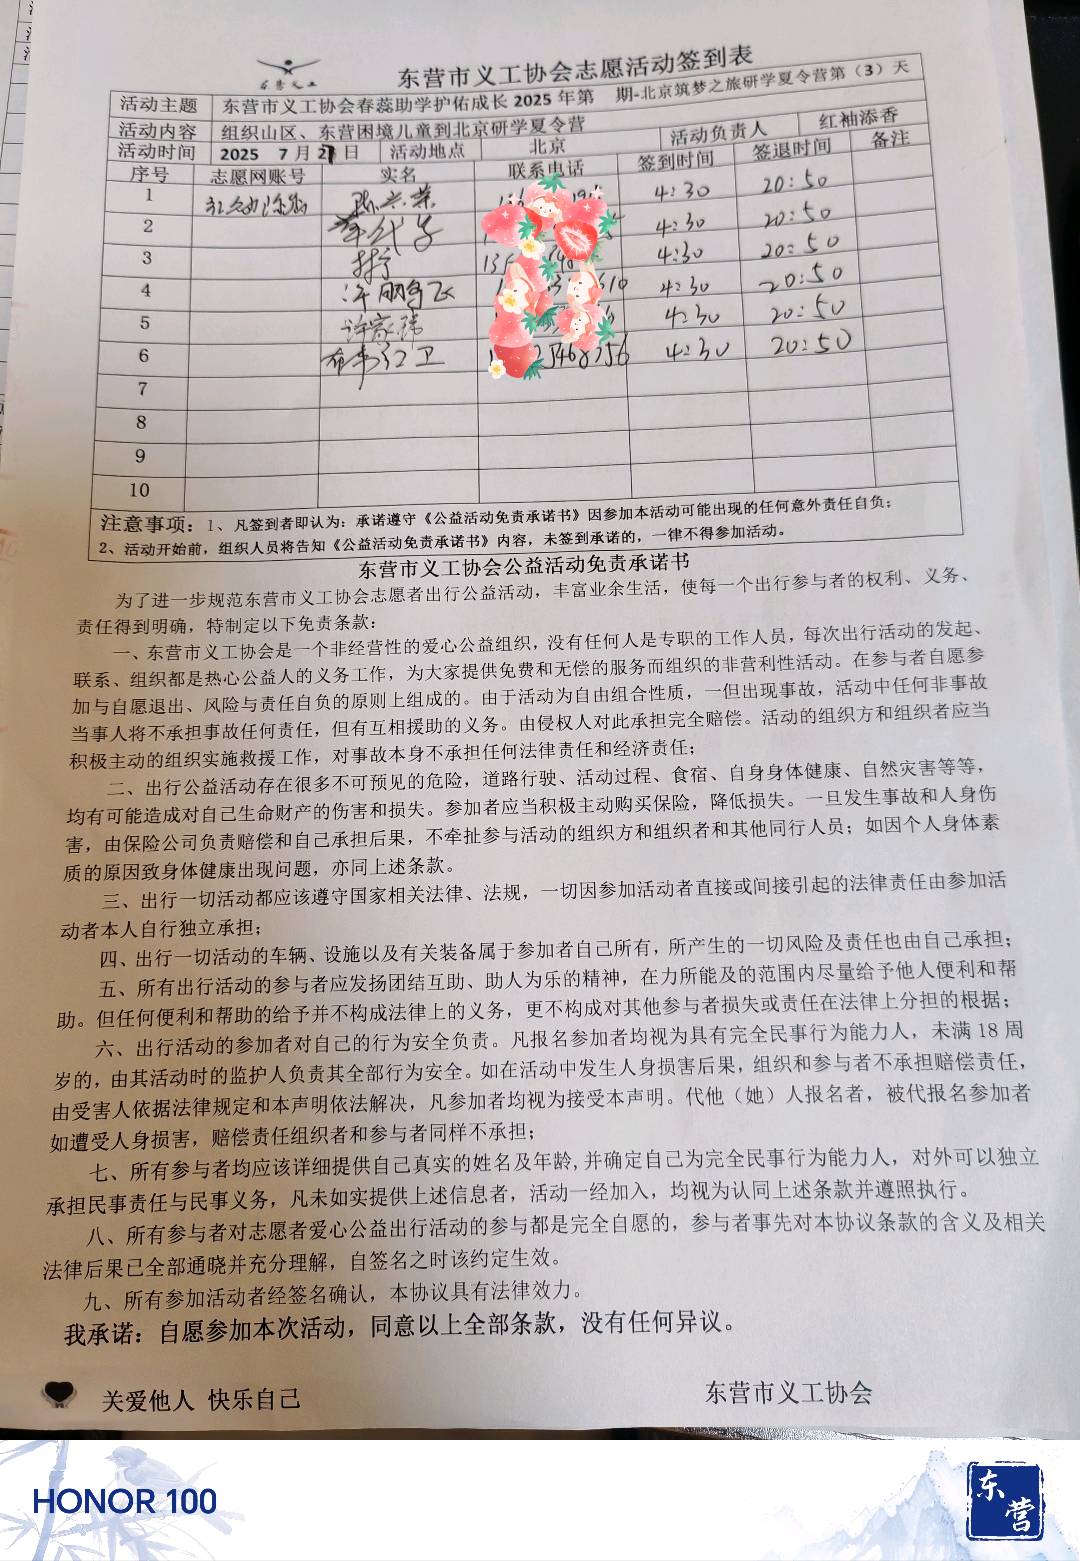 东营义工
东营市义工协会志愿活动签到表
活动主题 东营市义工协会春蕊助学护佑成长 2025 年第 期-北京筑梦之旅研学夏令营第（3）天
活动内容 组织山区、东营困境儿童到北京研学夏令营 活动负责人 红袖添香
活动时间 2025 7 月 21 日 活动地点 北京
序号 志愿网账号 实名 联系电话 签到时间 签退时间 备注
1 4:30 20:50
2 4:30 20:50
3 4:30 20:50
4 4:30 20:50
5 许家祎 4:30 20:50
6 4:30 20:50
7
8
9
10
注意事项：1、凡签到者即认为：承诺遵守《公益活动免责承诺书》因参加本活动可能出现的任何意外责任自负；
2、活动开始前，组织人员将告知《公益活动免责承诺书》内容，未签到承诺的，一律不得参加活动。
东营市义工协会公益活动免责承诺书
为了进一步规范东营市义工协会志愿者出行公益活动，丰富业余生活，使每一个出行参与者的权利、义务、
责任得到明确，特制定以下免责条款：
一、东营市义工协会是一个非经营性的爱心公益组织，没有任何人是专职的工作人员，每次出行活动的发起、
联系、组织都是热心公益人的义务工作，为大家提供免费和无偿的服务而组织的非营利性活动。在参与者自愿参
加与自愿退出、风险与责任自负的原则上组成的。由于活动为自由组合性质，一但出现事故，活动中任何非事故
当事人将不承担事故任何责任，但有互相援助的义务。由侵权人对此承担完全赔偿。活动的组织方和组织者应当
积极主动的组织实施救援工作，对事故本身不承担任何法律责任和经济责任；
二、出行公益活动存在很多不可预见的危险，道路行驶、活动过程、食宿、自身身体健康、自然灾害等等，
均有可能造成对自己生命财产的伤害和损失。参加者应当积极主动购买保险，降低损失。一旦发生事故和人身伤
害，由保险公司负责赔偿和自己承担后果，不牵扯参与活动的组织方和组织者和其他同行人员；如因个人身体素
质的原因致身体健康出现问题，亦同上述条款。
三、出行一切活动都应该遵守国家相关法律、法规，一切因参加活动者直接或间接引起的法律责任由参加活
动者本人自行独立承担；
四、出行一切活动的车辆、设施以及有关装备属于参加者自己所有，所产生的一切风险及责任也由自己承担；
五、所有出行活动的参与者应发扬团结互助、助人为乐的精神，在力所能及的范围内尽量给予他人便利和帮
助。但任何便利和帮助的给予并不构成法律上的义务，更不构成对其他参与者损失或责任在法律上分担的根据；
六、出行活动的参加者对自己的行为安全负责。凡报名参加者均视为具有完全民事行为能力人，未满 18 周
岁的，由其活动时的监护人负责其全部行为安全。如在活动中发生人身损害后果，组织和参与者不承担赔偿责任，
由受害人依据法律规定和本声明依法解决，凡参加者均视为接受本声明。代他（她）人报名者，被代报名参加者
如遭受人身损害，赔偿责任组织者和参与者同样不承担；
七、所有参与者均应该详细提供自己真实的姓名及年龄,并确定自己为完全民事行为能力人，对外可以独立
承担民事责任与民事义务，凡未如实提供上述信息者，活动一经加入，均视为认同上述条款并遵照执行。
八、所有参与者对志愿者爱心公益出行活动的参与都是完全自愿的，参与者事先对本协议条款的含义及相关
法律后果已全部通晓并充分理解，自签名之时该约定生效。
九、所有参加活动者经签名确认，本协议具有法律效力。
我承诺：自愿参加本次活动，同意以上全部条款，没有任何异议。
关爱他人 快乐自己 东营市义工协会
HONOR 100
东营